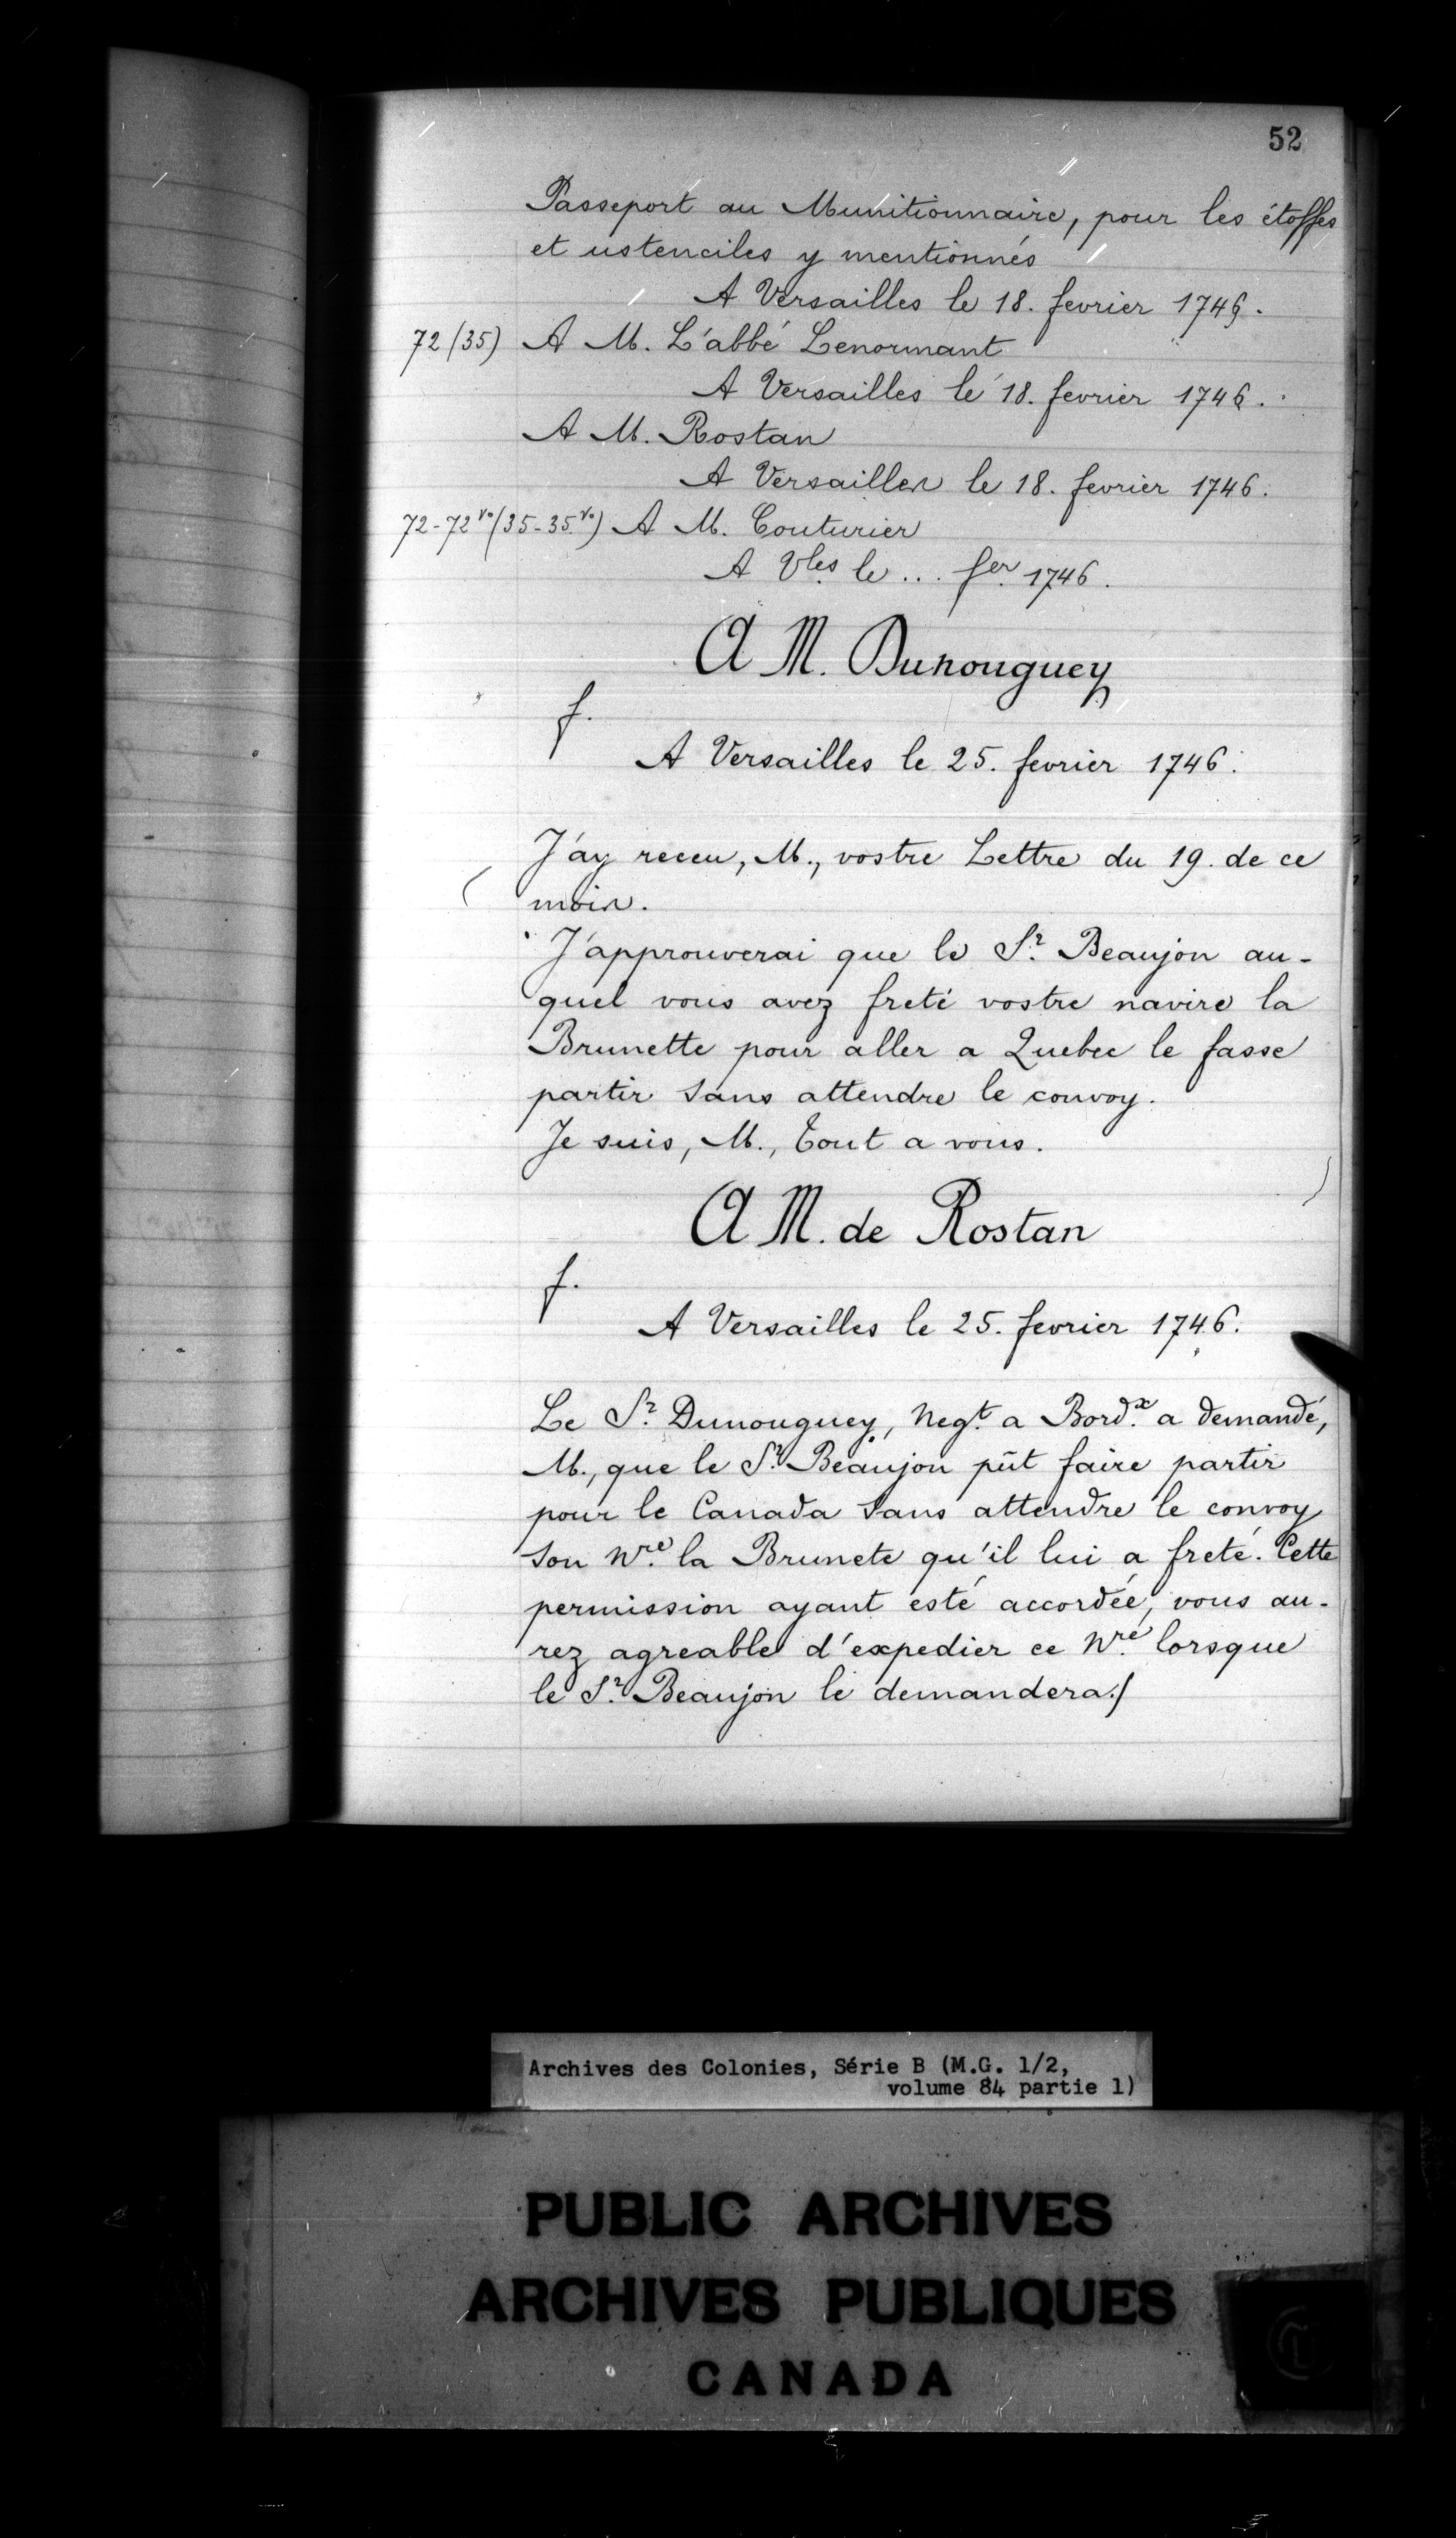 52
Passeport au Munitionnaire, pour les étoffes
et ustenciles y mentionnés
A Versailles le 18. fevrier 1746.
72 (35) A M. L'abbé Lenormant
A Versailles le 18. fevrier 1746.
A M. Rostan
A Versailles le 18. fevrier 1746.
72-72vo (35-35vo) A M. Couturier
A Vles le ... fer 1746.
A M. Dunouguey
f.
A Versailles le 25. fevrier 1746.
J'ay receu, M., vostre Lettre du 19. de ce
mois.
J'approuverai que le Sr. Beaujon au-
quel vous avez freté vostre navire la
Brunette pour aller a Quebec le fasse
partir sans attendre le convoy.
Je suis, M., Tout a vous.
A M. de Rostan
f.
A Versailles le 25. fevrier 1746.
Le Sr. Dunouguey, Negt. a Bordx. a demandé,
M., que le Sr. Beaujon pût faire partir
pour le Canada sans attendre le convoy
son Nre. la Brunete qu'il lui a freté. Cette
permission ayant esté accordée, vous au-
rez agreable d'expedier ce Nre. lorsque
le Sr. Beaujon le demandera./
Archives des Colonies, Série B (M.G. 1/2,
volume 84 partie 1)
PUBLIC ARCHIVES
ARCHIVES PUBLIQUES
CANADA